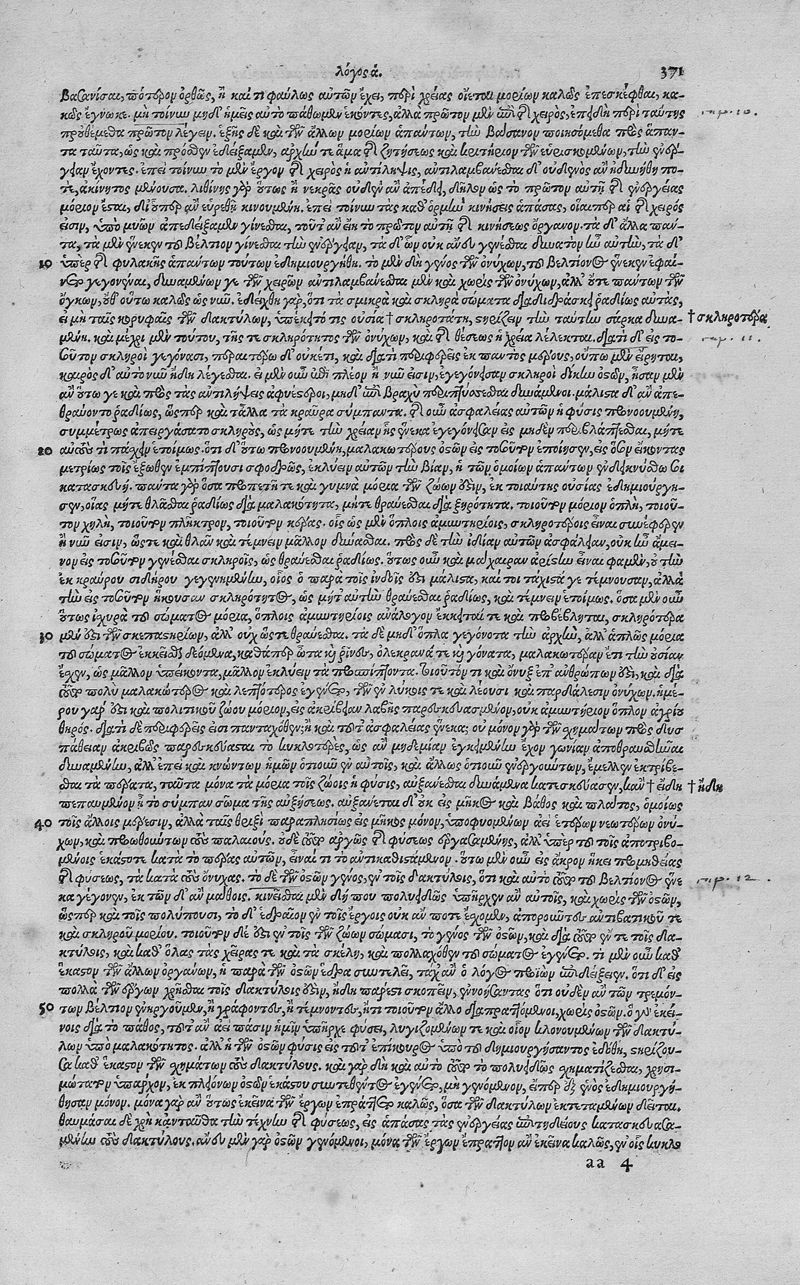 λόγος ά. 371
βασανίσαι, πότερον ὀρθῶς, ἢ καί τι φαύλως αὐτῶν ἔχει, περὶ χρείας οἴεται μορίων καλῶς ἐπεσκέφθαι, κα-
κῶς ἔγνωκε. μὴ τοίνυν μηδ' ἡμεῖς αὐτὸ πάθωμεν ἑκόντες, ἀλλὰ πρῶτον μὲν ἐπὶ τῆς χειρὸς, ἐπειδὴ περὶ ταύτης
προὐθέμεθα πρῶτον λέγειν. ἑξῆς δὲ καὶ τῶν ἄλλων μορίων ἁπάντων, τὴν βάσανον ποιησόμεθα πρὸς ἅπαν-
τα ταῦτα, ὡς καὶ πρόσθεν ἐδείξαμεν, ἀρχήν τε ἅμα τῆς ζητήσεως καὶ κριτήριον τῶν εὑρισκομένων, τὴν ἐνέρ-
γειαν ἔχοντες. ἐπεὶ τοίνυν τὸ μὲν ἔργον τῆς χειρὸς ἡ ἀντίληψις, ἀντιλαμβάνεσθαι δ' οὐδενὸς ἂν ἠδυνήθη πο-
τὲ, ἀκίνητος μένουσα. λιθίνης γὰρ οὕτως ἢ νεκρᾶς οὐδὲν ἂν ἀπέδει, δῆλον ὡς τὸ πρῶτον αὐτῆς τῆς ἐνεργείας
μόριον ἔσται, δι' ὅπερ ἂν εὑρεθῇ κινουμένη. ἐπεὶ τοίνυν τὰς καθ' ὁρμὴν κινήσεις ἁπάσας, οἷαιπερ αἱ τῆς χειρός
εἰσιν, ὑπὸ μυῶν ἀπεδείξαμεν γίνεσθαι, τοῦτ' ἂν εἴη τὸ πρῶτον αὐτῇ τῆς κινήσεως ὄργανον. τὰ δ' ἄλλα πάν-
τα, τὰ μὲν ἕνεκεν τοῦ βέλτιον γίνεσθαι τὴν ἐνέργειαν, τὰ δ' ὧν οὐκ ἄνευ γενέσθαι δυνατὸν ἦν αὐτὴν, τὰ δ'
10 ὑπὲρ τῆς φυλακῆς ἁπάντων τούτων ἐδημιουργήθη. τὸ μὲν δὴ γένος τῶν ὀνύχων, τοῦ βελτίονος ἕνεκεν ἐφαί-
νετο γεγονέναι, δυναμένων γε τῶν χειρῶν ἀντιλαμβάνεσθαι μὲν καὶ χωρὶς ὀνύχων, ἀλλ' οὔτε πάντων τῶν
ὄγκων, οὔθ' οὕτω καλῶς ὡς νῦν. ἐδείχθη γὰρ, ὅτι τὰ σμικρὰ καὶ σκληρὰ σώματα διαδιδράσκει ῥᾳδίως αὐτὰς,
εἰ μὴ ταῖς κορυφαῖς τῶν δακτύλων, ὑπέκειτό τις οὐσία † σκληροτάτη, στηρίζειν τὴν ταύτῃ σάρκα δυνα- † σκληροτέρα
μένη. καὶ μέχρι μὲν τούτου, τῆς τε σκληρότητος τῶν ὀνύχων, καὶ τῆς θέσεως ἡ χρεία λέλεκται. διατί δ' εἰς το-
σοῦτον σκληροὶ γεγόνασι, περαιτέρω δ' οὐκέτι, καὶ διατί περιφερεῖς ἐκ παντὸς μέρους, οὔπω μὲν εἴρηται,
καιρὸς δ' αὐτὸ νῦν ἤδη λέγεσθαι. εἰ μὲν οὖν ἐπὶ πλέον ἢ νῦν εἰσιν, ἐγεγόνεισαν σκληροὶ δίκην ὀστῶν, ἦσαν μὲν
ἂν οὕτω γε καὶ πρὸς τὰς ἀντιλήψεις ἀφυέστεροι, μηδ' ἐπὶ βραχὺ περιπτύσσεσθαι δυνάμενοι. μάλιστα δ' ἂν ἀπε-
θραύοντο ῥᾳδίως, ὥσπερ καὶ τἄλλα τὰ κραῦρα σύμπαντα. τῆς οὖν ἀσφαλείας αὐτῶν ἡ φύσις προνοουμένη,
συμμέτρως ἀπειργάσατο σκληροὺς, ὡς μήτε τὴν χρείαν ἧς ἕνεκα ἐγεγόνεισαν εἰς μηδὲν περιβλάπτεσθαι, μήτε
20 αὐτοὺς τὶ πάσχειν ἑτοίμως. ὅτι δ' οὕτω προνοουμένη, μαλακωτέρους ὀστῶν εἰς τοσοῦτον ἐποίησεν, εἰς ὅσον εἴκοντας
μετρίως τοῖς ἔξωθεν ἐμπίπτουσι σφοδρῶς, ἐκλύειν αὐτῶν τὴν βίαν, ἡ τῶν ὁμοίων ἁπάντων ἐνδείκνυταί σοι
κατασκευή. πάντα γὰρ ὅσα προπετῆ τε καὶ γυμνὰ μόρια τῶν ζώων ἐστὶν, ἐκ τοιαύτης οὐσίας ἐδημιούργη-
σεν, οἵας μήτε θλᾶσθαι ῥᾳδίως διὰ μαλακότητα, μήτε θραύεσθαι διὰ ξηρότητα. τοιοῦτον μόριον ὁπλὴ, τοιοῦ-
τον χηλὴ, τοιοῦτον πλῆκτρον, τοιοῦτον κέρας. οἷς ὡς μὲν ὅπλοις ἀμυντηρίοις, σκληροτέροις εἶναι συνέφερεν
ἢ νῦν εἰσιν, ὥστε καὶ θλᾶν καὶ τέμνειν μᾶλλον δύνασθαι. πρὸς δὲ τὴν ἰδίαν αὐτῶν ἀσφάλειαν, οὐκ ἦν ἄμει-
νον εἰς τοσοῦτον γενέσθαι σκληροῖς, ὡς θραύεσθαι ῥᾳδίως. οὕτως οὖν καὶ μάχαιραν ἀρίστην εἶναι φαμὲν, οὐ τὴν
ἐκ κραύρου σιδήρου γεγενημένην, οἷος ὁ παρὰ τοῖς ἰνδοῖς ἐστι μάλιστα, καί τοι τάχιστά γε τέμνουσαν, ἀλλὰ
τὴν εἰς τοσοῦτον ἥκουσαν σκληρότητος, ὡς μήτ' αὐτὴν θραύεσθαι ῥᾳδίως, καὶ τέμνειν ἑτοίμως. ὅσα μὲν οὖν
οὕτως ἰσχυρὰ τοῦ σώματος μόρια, ὅπλοις ἀμυντηρίοις ἀνάλογον ἔκκειταί τε καὶ προβέβληται, σκληρότερα
30 μέν ἐστι τῶν σκεπαστηρίων, ἀλλ' οὐχ ὥστε θραύεσθαι. τὰ δὲ μηδ' ὅπλα γεγονότα τὴν ἀρχὴν, ἀλλ' ἁπλῶς μόρια
τοῦ σώματος ἐκκεῖσθαι δεόμενα, καθάπερ ὦτα καὶ ῥινὸς, ὀλέκρανά τε καὶ γόνατα, μαλακωτέραν ἔτι τὴν οὐσίαν
ἔχειν, ὡς μᾶλλον ὑπείκοντα, μᾶλλον ἐκλύειν τὰ προσπίπτοντα. τοιοῦτόν τι καὶ ὄνυξ ἐπ' ἀνθρώπων ἐστὶ, καὶ διὰ
τοῦτο πολὺ μαλακώτερος καὶ λεπτότερος ἐγένετο, τῶν ἐν λύκοις τε καὶ λέουσι καὶ παρδάλεσιν ὀνύχων. ἡμέ-
ρου γάρ ἐστι καὶ πολιτικοῦ ζώου μόριον, εἰς ἀκρίβειαν λαβῆς παρεσκευασμένον, οὐκ ἀμυντήριον ὅπλον ἀγρίου
θηρός. διατί δὲ περιφερεῖς εἰσι πανταχόθεν; ἢ καὶ τοῦτ' ἀσφαλείας ἕνεκα; οὐ μόνον γὰρ τῶν σχημάτων πρὸς δυσ-
πάθειαν ἀκριβῶς παρεσκεύασται τὸ κυκλοτερὲς, ὡς ἂν μηδεμίαν ἐγκειμένην ἔχον γωνίαν ἀποθραυσθῆναι
δυναμένην, ἀλλ' ἐπεὶ καὶ κνώντων ἡμῶν ὁτιοῦν ἐν αὐτοῖς, καὶ ἄλλως ὁτιοῦν ἐνεργούντων, ἔμελλεν ἐκτρίβε-
σθαι τὰ πέρατα, ταῦτα μόνα τὰ μόρια τοῖς ζώοις ἡ φύσις, αὐξάνεσθαι δυνάμενα κατεσκεύασεν, κἂν † εἴδη † ἤδη
πεπαυμένον ᾖ τὸ σύμπαν σῶμα τῆς αὐξήσεως. αὐξάνεται δ' οὐκ εἰς μῆκος καὶ βάθος καὶ πλάτος, ὁμοίως
40 τοῖς ἄλλοις μέρεσιν, ἀλλὰ ταῖς θριξὶ παραπλησίως εἰς μῆκος μόνον, ὑποφυομένων ἀεὶ ἑτέρων νεωτέρων ὀνύ-
χων, καὶ προωθούντων τοὺς παλαιούς. οὐδὲ τοῦτο ἀργῶς τῆς φύσεως ἐργαζομένης, ἀλλ' ὑπὲρ τοῦ τοῖς ἀποτριβο-
μένοις ἑκάστοτε κατὰ τὸ πέρας αὐτῶν, εἶναί τι τὸ ἀντικαθιστάμενον. οὕτω μὲν οὖν εἰς ἄκρον ἥκει προμηθείας
τῆς φύσεως, τὰ κατὰ τοὺς ὄνυχας. τὸ δὲ τῶν ὀστῶν γένος, ἐν τοῖς δακτύλοις, ὅτι καὶ αὐτὸ τοῦ βελτίονος ἕνε-
κα γέγονεν, ἐκ τῶν δ' ἂν μάθοις. κινεῖσθαι μὲν δή που πολυειδῶς ὑπῆρχεν ἂν αὐτοῖς, καὶ χωρὶς ὀστῶν,
ὥσπερ καὶ τοῖς πολύποσι, τὸ δ' ἑδραῖον ἐν τοῖς ἔργοις οὐκ ἄν ποτε ἔσχομεν, ἀποροῦντες ἀντιβατικοῦ τε
καὶ σκληροῦ μορίου. τοιοῦτον δέ ἐστι ἐν τοῖς τῶν ζώων σώμασι, τὸ γένος τῶν ὀστῶν, καὶ διὰ τοῦτο ἔν τε τοῖς δα-
κτύλοις, καὶ καθ' ὅλας τὰς χεῖράς τε καὶ τὰ σκέλη, καὶ πολλαχόθεν τοῦ σώματος ἐγένετο. τί μὲν οὖν καθ'
ἕκαστον τῶν ἄλλων ὀργάνων, ἡ παρὰ τῶν ὀστῶν ἕδρα συντελεῖ, τάχ' ἂν ὁ λόγος προϊὼν ἐπιδείξειεν. ὅτι δ' εἰς
πολλὰ τῶν ἔργων χρηστὰ τοῖς δακτύλοις ἐστὶν, ἤδη πάρεστι σκοπεῖν, ἐννοήσαντας ὅτι οὐδὲν ἂν τῶν τρεμόν-
50 των βέλτιον ἐνηργοῦμεν, ἢ γράφοντες, ἢ τέμνοντες, ἤ τι τοιοῦτον ἄλλο διαπραττόμενοι, χωρὶς ὀστῶν. ὃ γὰρ ἐκεί-
νοις διὰ τὸ πάθος, τοῦτ' ἂν ἀεὶ πᾶσιν ἡμῖν ὑπῆρχε φύσει, λυγιζομένων τε καὶ οἷον κλονουμένων τῶν δακτύ-
λων ὑπὸ μαλακότητος. ἀλλ' ἡ τῶν ὀστῶν φύσις εἰς τοῦτ' ἐπίκουρος ὑπὸ τοῦ δημιουργήσαντος ἐδόθη, στηρίζου-
σα καθ' ἕκαστον τῶν σχημάτων τοὺς δακτύλους. καὶ γὰρ δὴ καὶ αὐτὸ τοῦτο τὸ πολυειδῶς σχηματίζεσθαι, χρησι-
μώτατον ὑπάρχον, ἐκ πλειόνων ὀστῶν ἑκάστου συντεθέντος ἐγένετο, μὴ γενόμενον, εἴπερ ἐξ ἑνὸς ἐδημιουργή-
θησαν μόνον. μόνα γὰρ ἂν οὕτως ἐκεῖνα τῶν ἔργων ἐπράττετο καλῶς, ὅσα τῶν δακτύλων ἐκτεταμένων δέεται.
θαυμάσαι δὲ χρὴ κἀνταῦθα τὴν τέχνην τῆς φύσεως, εἰς ἁπάσας τὰς ἐνεργείας ἐπιτηδείους κατασκευασα-
μένην τοὺς δακτύλους. ἄνευ μὲν γὰρ ὀστῶν γενόμενοι, μόνα τῶν ἔργων ἔπραττον ἂν ἐκεῖνα καλῶς, ἐν οἷς κυκλο
aa 4